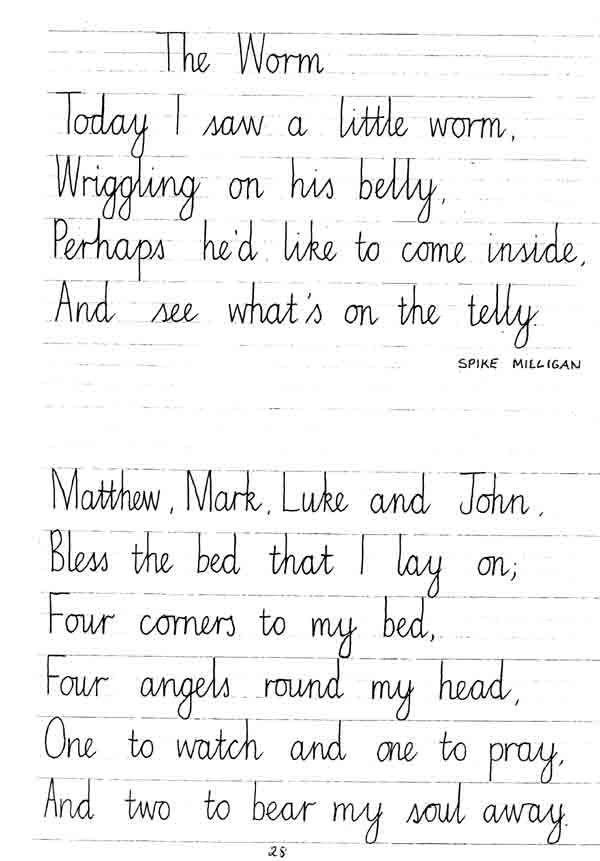 The Worm
Today I saw a little worm,
Wriggling on his belly,
Perhaps he'd like to come inside,
And see what's on the telly.
SPIKE MILLIGAN
Matthew, Mark, Luke and John,
Bless the bed that I lay on;
Four corners to my bed,
Four angels round my head,
One to watch and one to pray,
And two to bear my soul away.
28